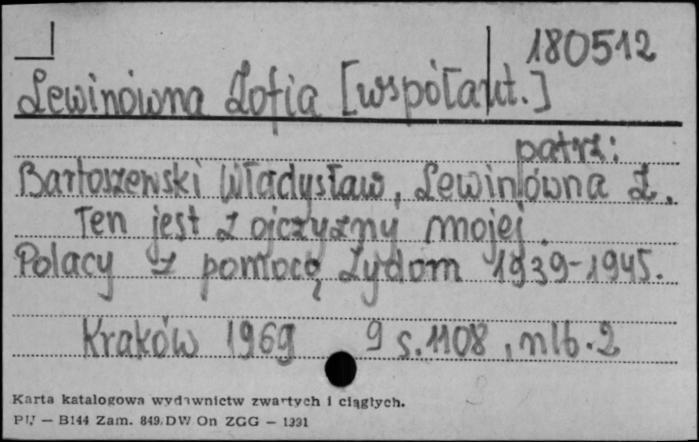 180512
Lewinówna Zofia [współaut.]
patrz:
Bartoszewski Władysław, Lewinówna Z.
Ten jest z ojczyzny mojej.
Polacy z pomocą Żydom 1939-1945.
Kraków 1969 9 s. 1108, nlb. 2
Karta katalogowa wydawnictw zwartych i ciągłych.
PU — B144 Zam. 849. DW On ZGG — 1391